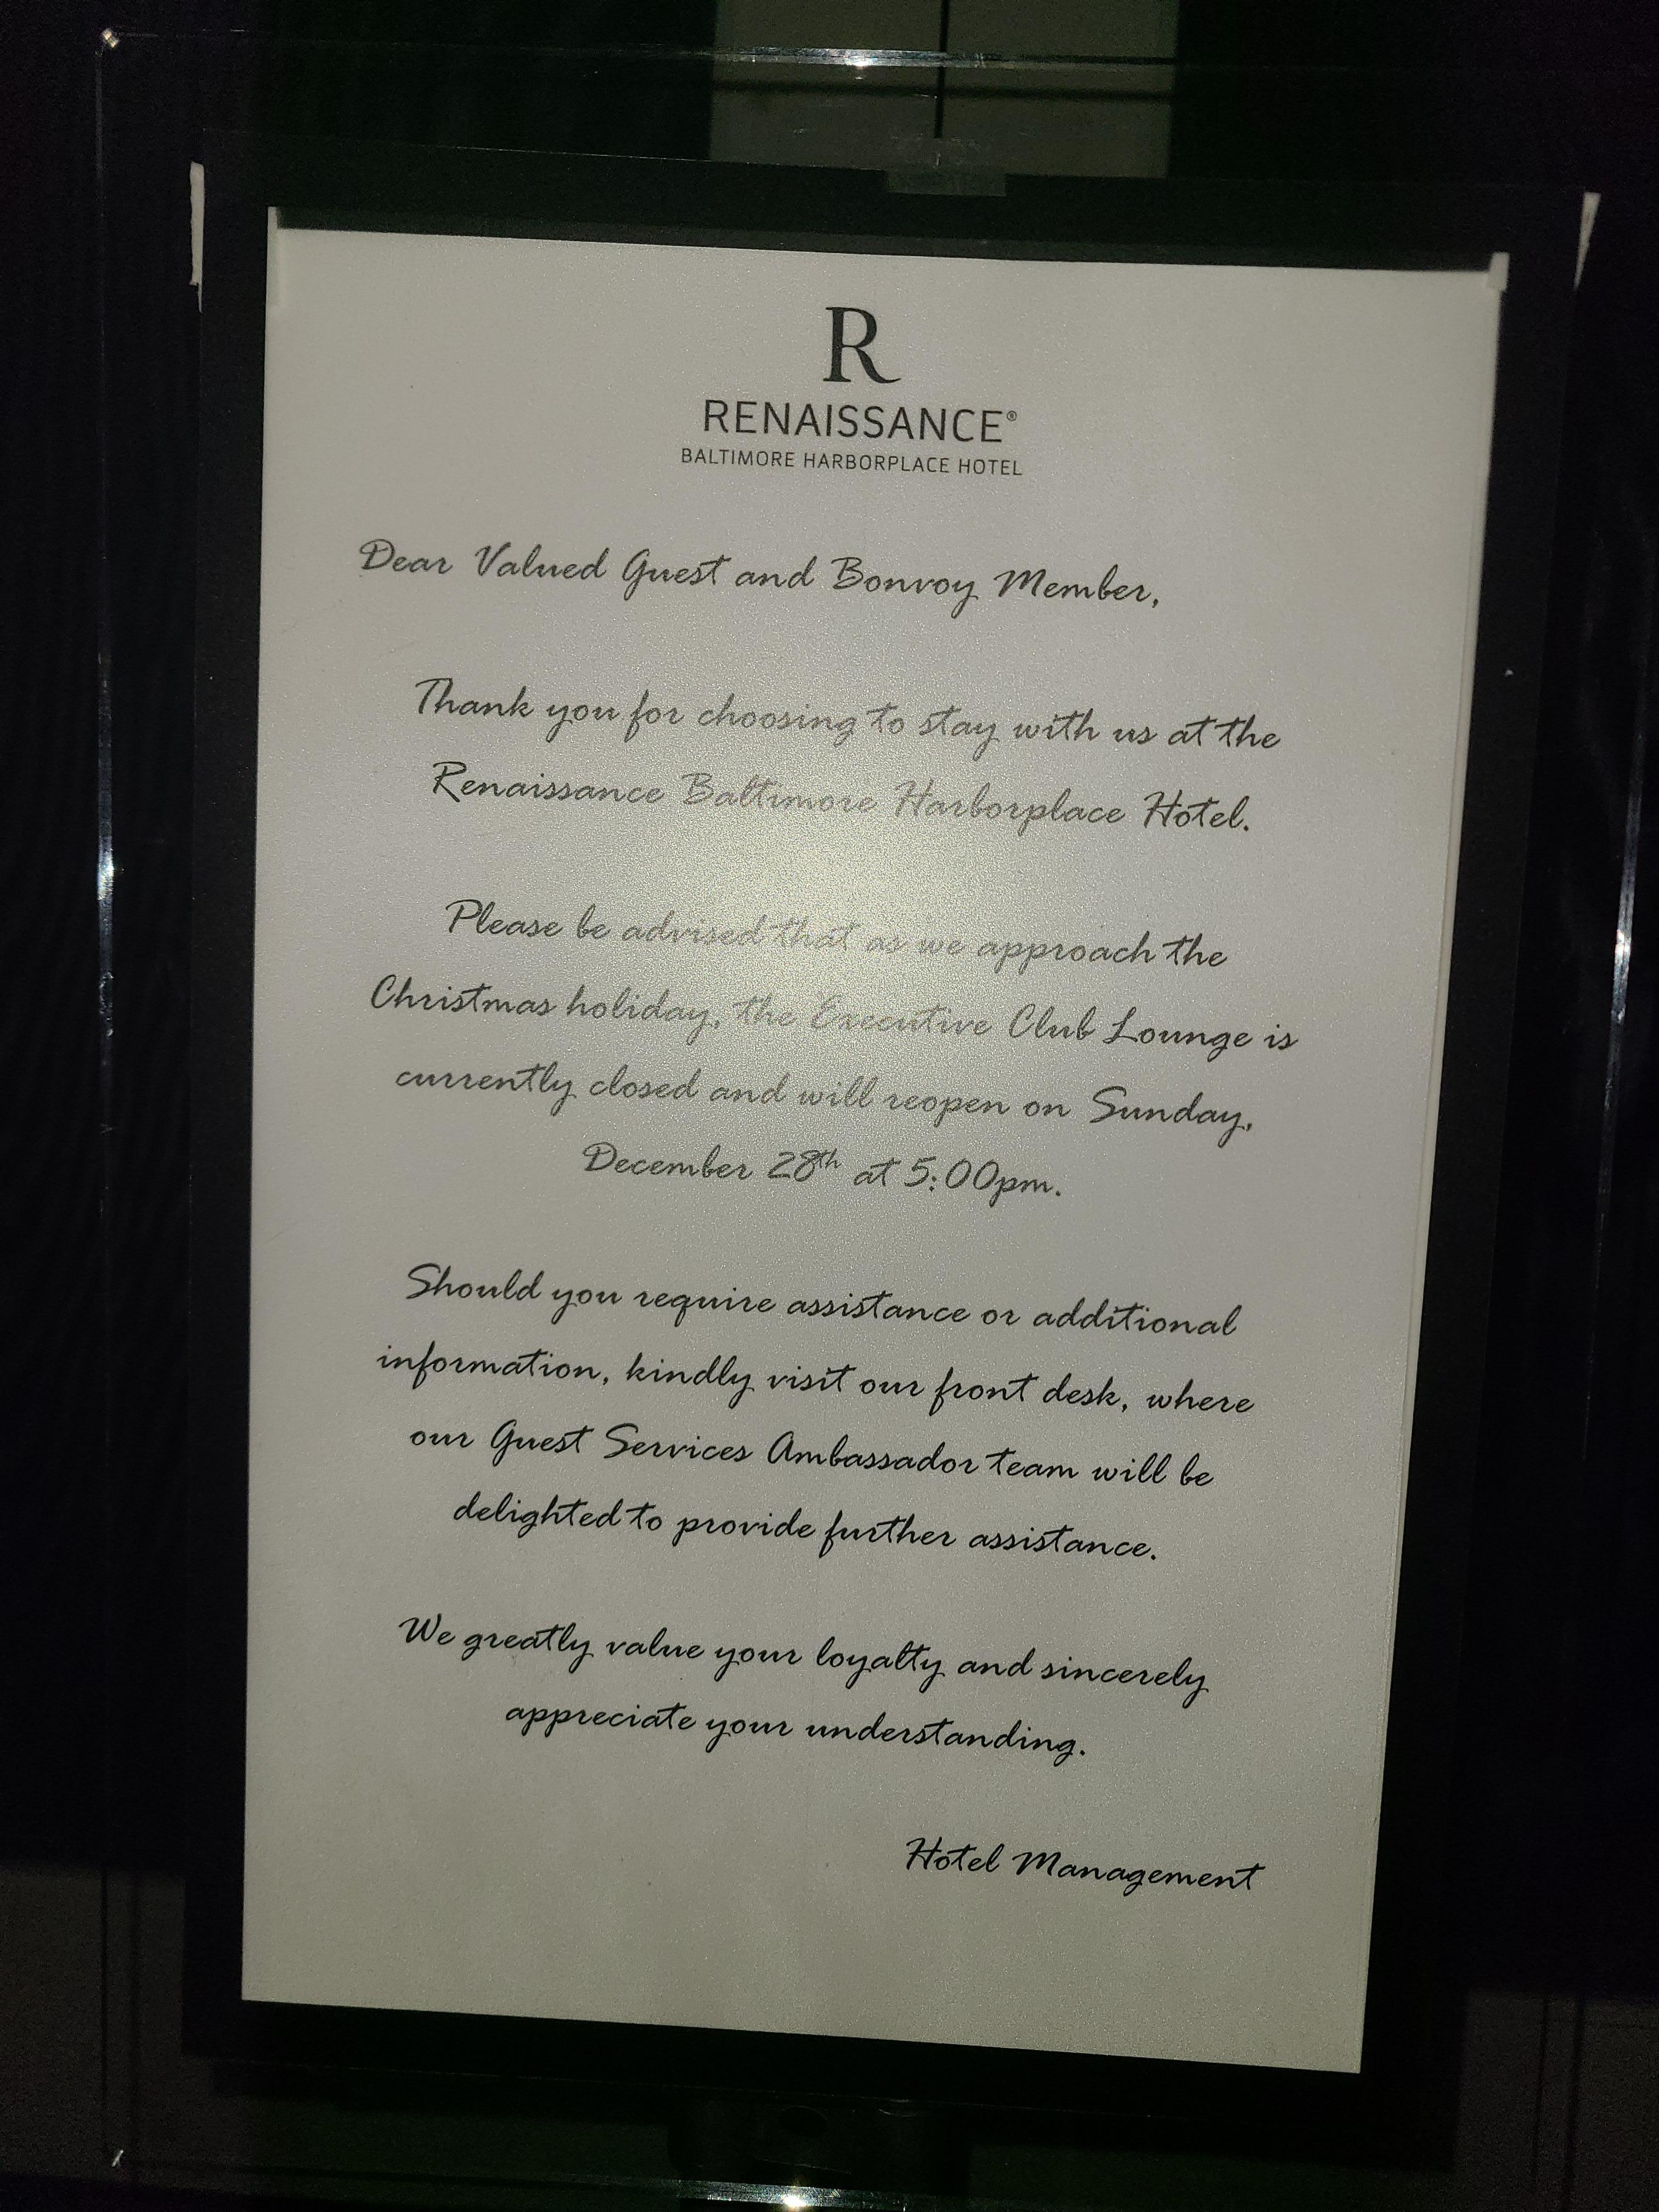 R
RENAISSANCE®
BALTIMORE HARBORPLACE HOTEL
Dear Valued Guest and Bonvoy Member,
Thank you for choosing to stay with us at the
Renaissance Baltimore Harborplace Hotel.
Please be advised that as we approach the
Christmas holiday, the Executive Club Lounge is
currently closed and will reopen on Sunday,
December 28th at 5:00pm.
Should you require assistance or additional
information, kindly visit our front desk, where
our Guest Services Ambassador team will be
delighted to provide further assistance.
We greatly value your loyalty and sincerely
appreciate your understanding.
Hotel Management